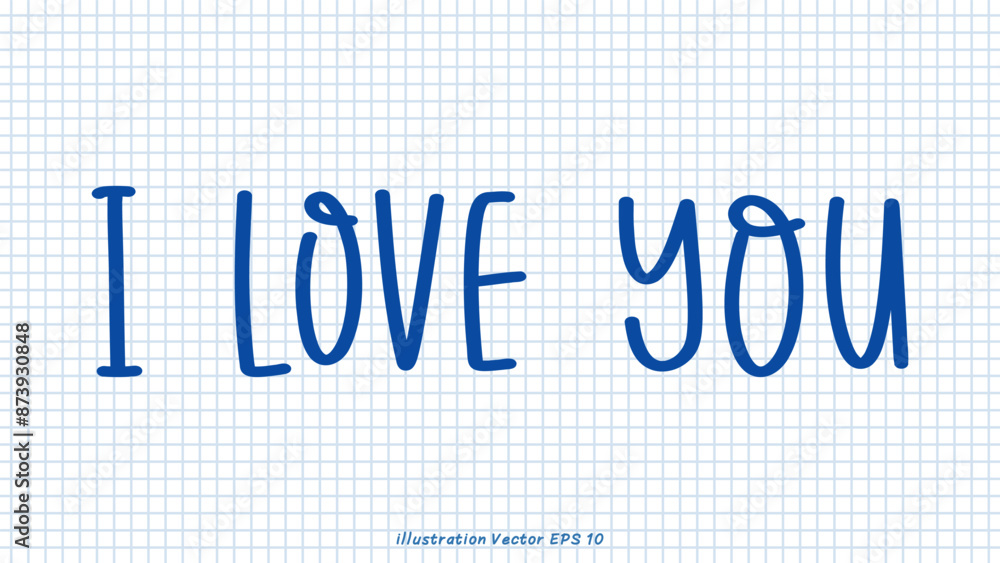 I LOVE YOU
illustration Vector EPS 10
Adobe Stock | #873930848